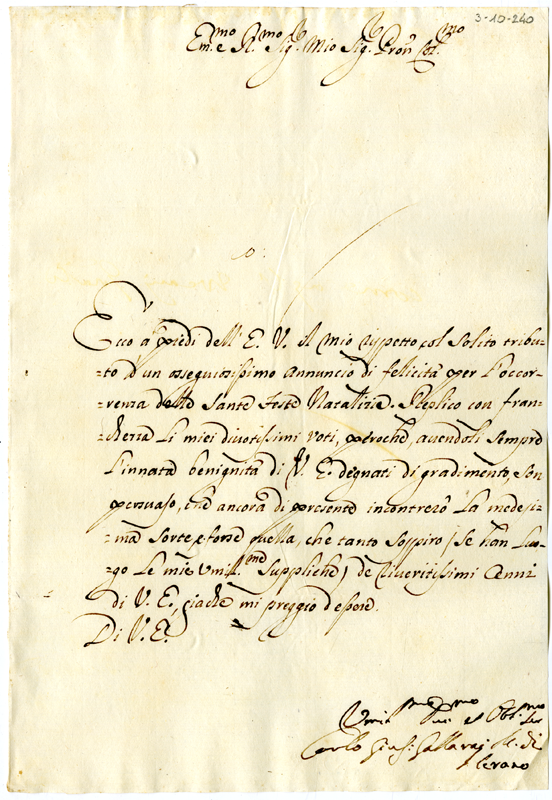 3-10-240
Em.mo e R.mo Sig. Mio Sig. Pron Col.mo
Ecco a' piedi dell' E. V. il mio rispetto col solito tribu-
-to d'un ossequiosissimo annuncio di felicità per l'occor-
-renza delle Sante Feste Natalizie. Replico con fran-
-chezza li miei divotissimi voti, perochè, auendoli sempre
l'innata benignità di V. E. degnati di gradimento, son
persuaso, che ancora di presente incontrerò la medesi-
-ma sorte, e forse quella, che tanto sospiro / se han luo-
-go le mie umil.me suppliche / de riueritissimi Cenni
di V. E., giache mi preggio d'essere.
Di V. E.
Umil.mo Diu.mo et Obl.mo Ser
Carlo Gius. Gallarati di
Cerano